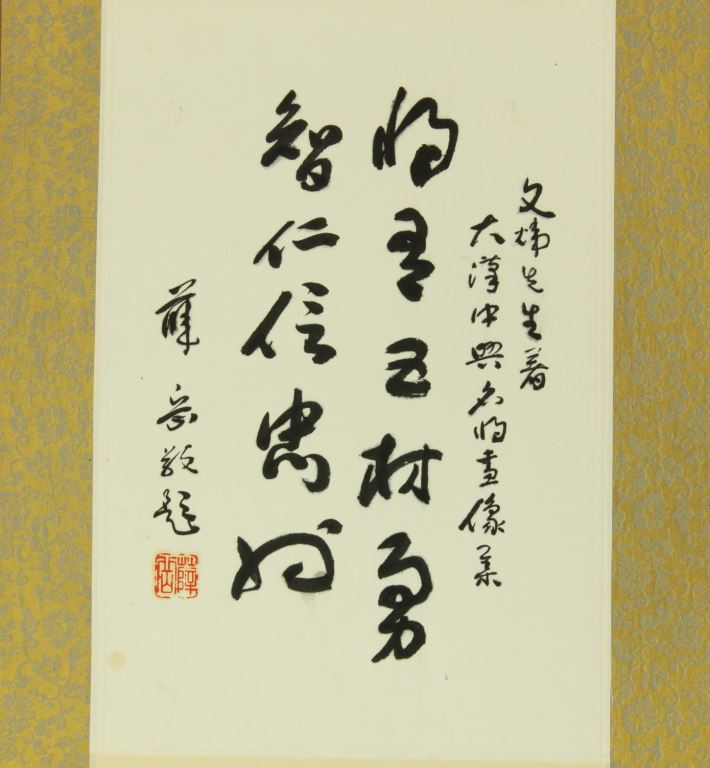 文煒先生著
大漢中興名將畫像集
將有五材勇
智仁信忠也
薛岳敬題
薛岳